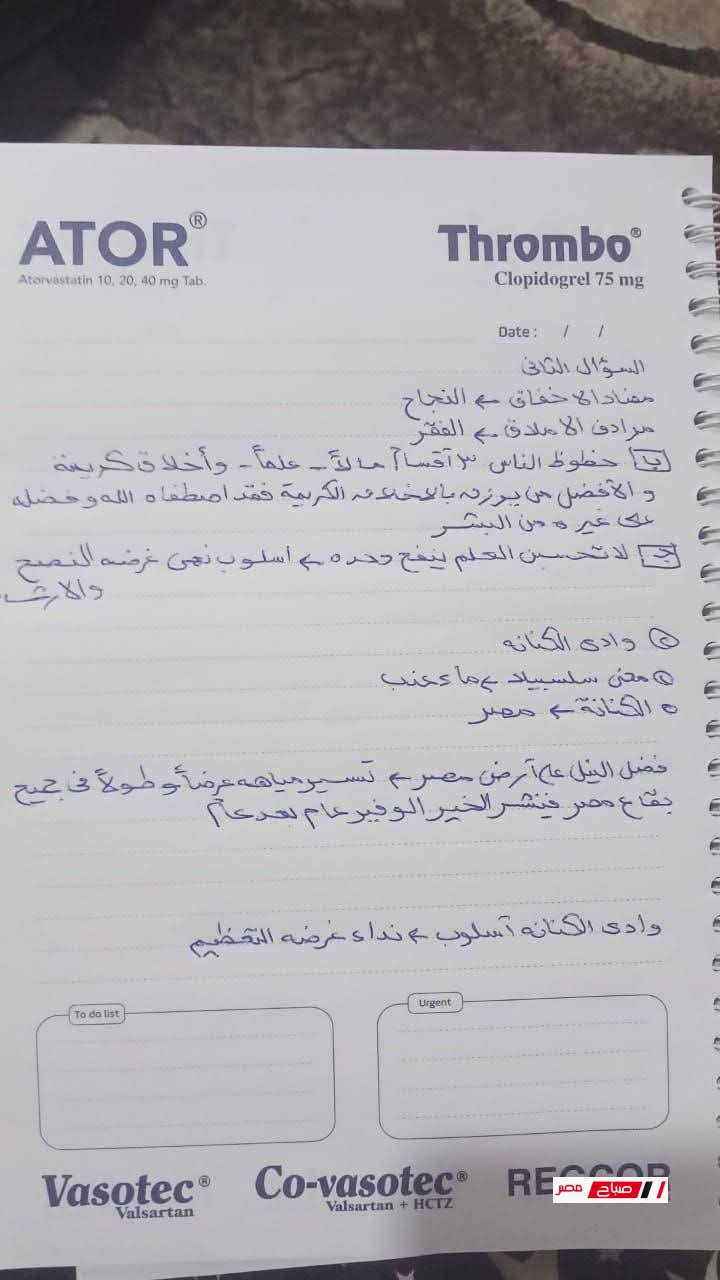 ATOR®
Atorvastatin 10, 20, 40 mg Tab.
Thrombo®
Clopidogrel 75 mg
Date : / /
السؤال الثانى
مضاد الاخفاق ← النجاح
مرادف الاملاق ← الفقر
ب حظوظ الناس ٣ أقسام مالاً - علماً - وأخلاق كريمة
والأفضل من يرزق بالاخلاق الكريمة فقد اصطفاه الله وفضله
على غيره من البشر
جـ لا تحسبن العلم ينفع وحده ← اسلوب نهى غرضه النصح
والارشاد
وادى الكنانه
معنى سلسبيلا ← ماء عذب
الكنانة ← مصر
فضل النيل على أرض مصر ← تسير مياهه عرضاً وطولاً فى جميع
بقاع مصر فينشر الخير الوفير عام بعد عام
وادى الكنانه أسلوب ← نداء غرضه التعظيم
To do list
Urgent
Vasotec®
Valsartan
Co-vasotec®
Valsartan + HCTZ
صباح مصر